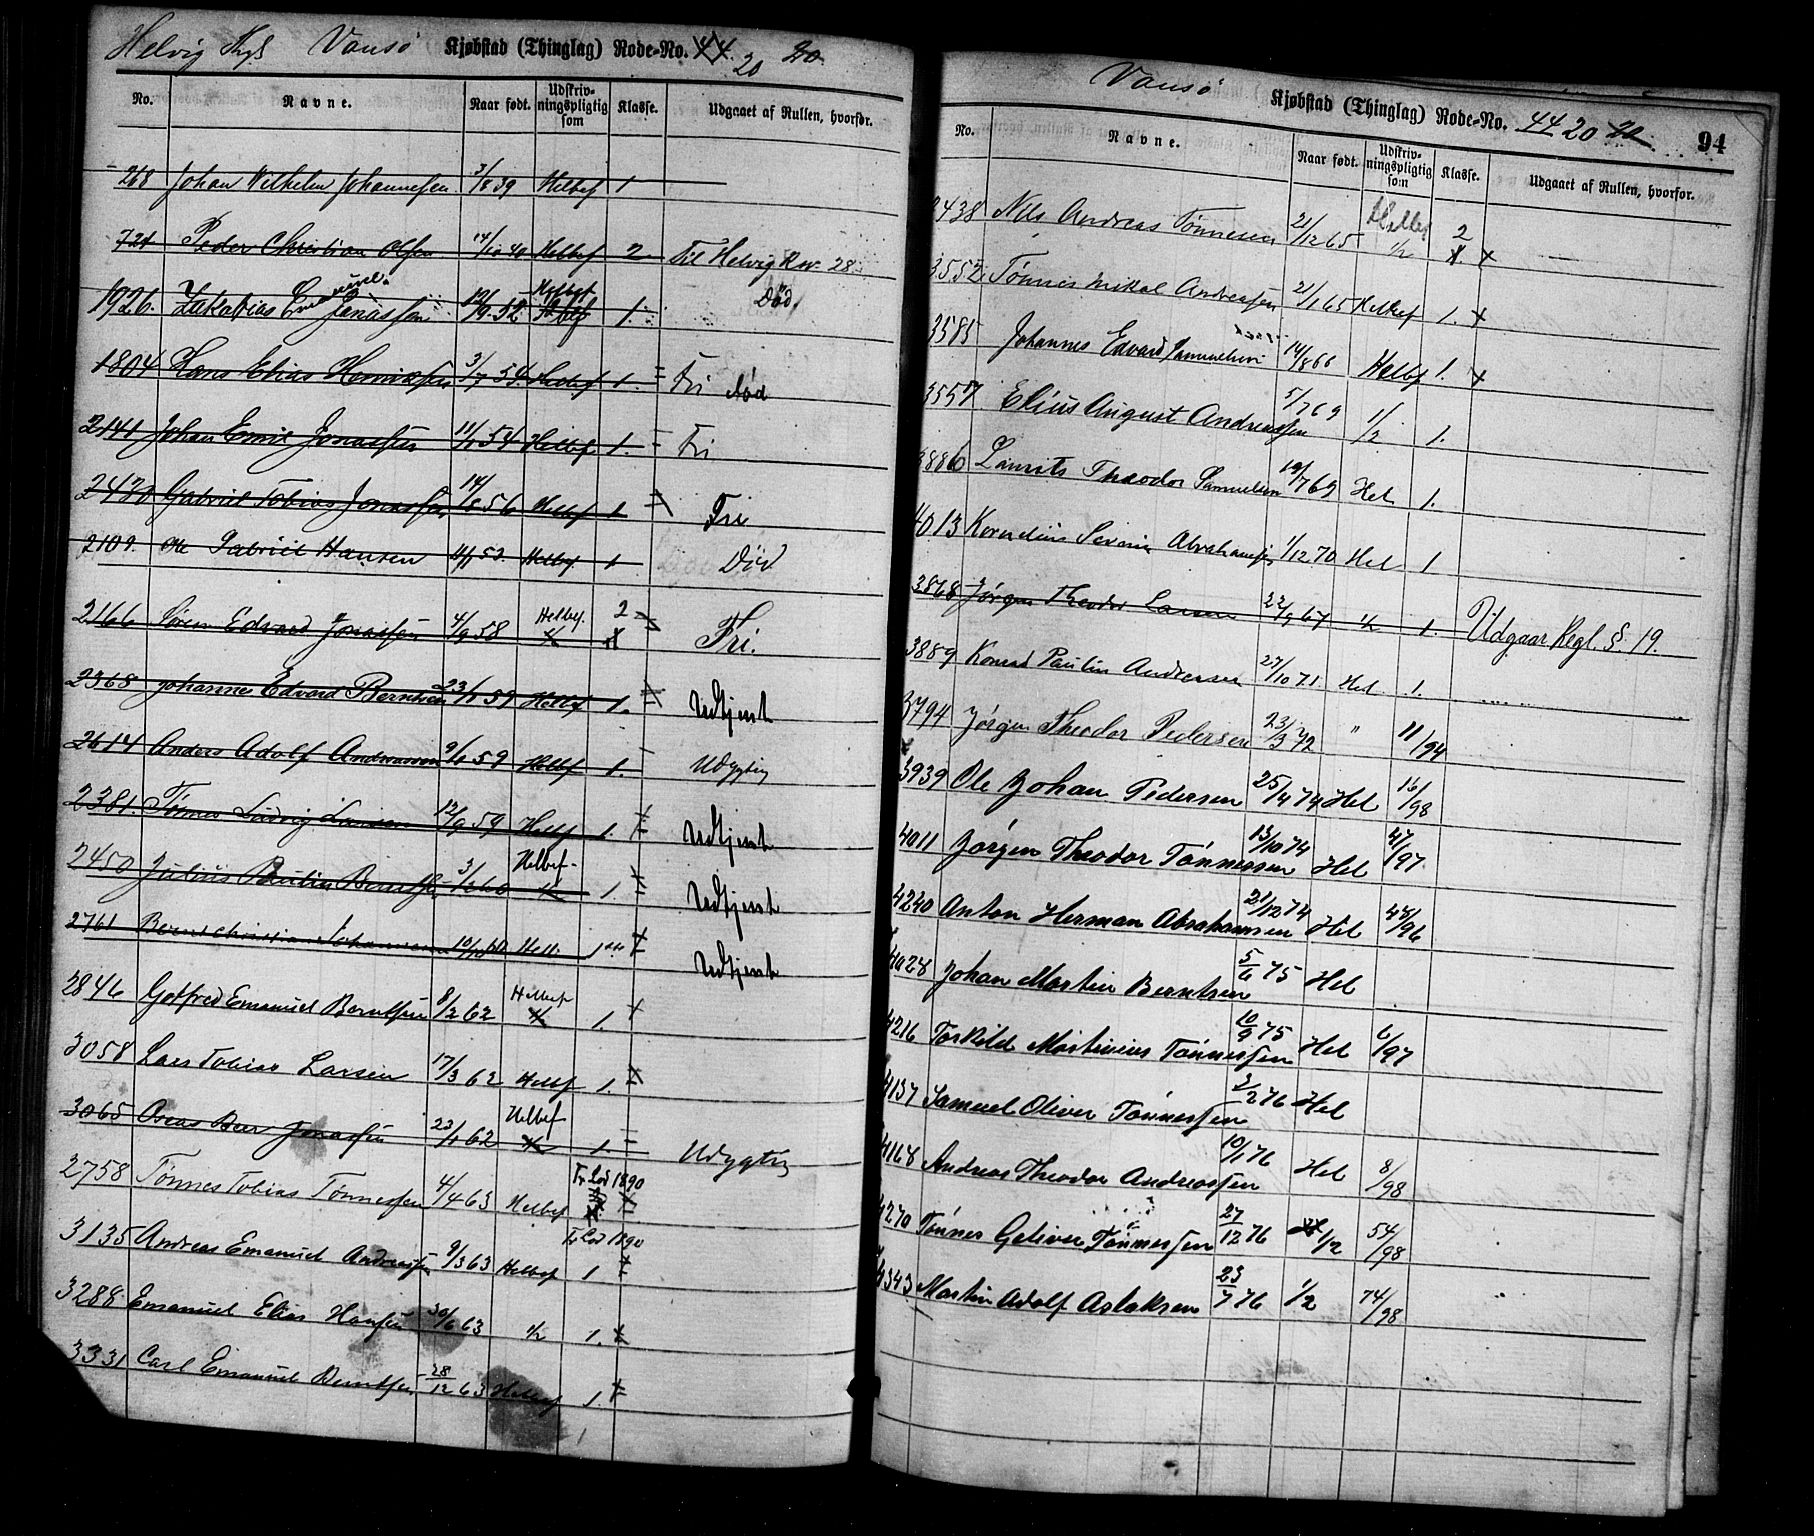 Helvig Kyst Vansø Kjøbstad (Thinglag) Rode-No. 44. 20 20
No. Navne. Naar født. Udskriv-ningspligtig som Klasse. Udgaaet af Rullen, hvorfor.
268 Johan Vilhelm Johannesen 3/8 39 Helbef 1
724 Peder Christian Olsen 14/10 40 Helbef 2 Til Helvig Rw. 28
1926. Zakarias Emanuel Jonassen 12/9 52 Helbef 1. Død
1804 Hans Elias 3/7 54 Helbef 1. Fri død
2141 Johan Emil Jonassen 11/1 54 Helbef 1. Fri
2470 Gabriel Tobias Jonassen 14/8 56 Helbef 1 Fri
2109. Ole Gabriel Hansen 4/1 53. Helbef 1 Død
2166 Søren Edvard Jonassen 4/9 58 Helbef. 2 Fri.
2368 Johannes Edvard Berntsen 23/1 59 Helbef 1. Udtjent
2614 Anders Adolf Andreassen 9/1 59 Helbef 1. Udygtig
2381. Tønnes Ludvig Larsen 12/9 59 Helbf 1. Udtjent
2450 Julius Paulin Berntsen 3/2 60 Helbef 1. Udtjent
2761 Bernt Christian Johannesen 10/12 60 Helb. 1 Udtjent
2846 Gotfred Emanuel Berntsen 8/2 62 Helbef 1.
3058 Lars Tobias Larsen 17/3 62 Helbf 1.
3065 Jonassen 23/1 62 Helbef 1. Udygtig
2758 Tønnes Tobias Tønnessen 4/4 63 Helbef Fr Lod 1890
3135 Andreas Emanuel Andreassen 9/3 63 Helbef 1 Fr Lod 1890
3288 Emanuel Elias Hansen 30/6 63 1/2 1.
3331 Carl Emanuel Berntsen 28/12 63 Helbef 1.
Vansø Kjøbstad (Thinglag) Rode-No. 44 20 20 94
No. Navne. Naar født. Udskriv-ningspligtig som Klasse. Udgaaet af Rullen, hvorfor.
2438 Nils Andreas Tønnesen 21/12 65 Helbef 1/2 2
3552 Tønnes Mikal Andreassen 21/1 65 Helbef 1.
3585 Johannes Edvard Samuelsen 14/8 66 Helbf 1.
3557 Elius August Andreassen 5/7 69 1/2 1.
3886 Laurits Theodor Samuelsen 19/7 69 Hel 1.
4013 Kornelius Severin Abrahamsen 1/12 70 Hel 1
3868 Jørgen Theodor Larsen 22/9 67 1/2 1. Udgaar Regl. §. 19.
3889 Konrad Paulin Andersen 27/10 71 Hel 1.
3794 Jørgen Theodor Pedersen 23/3 72 " 11/94
3939 Ole Johan Pedersen 25/4 74 Hel 16/98
4011 Jørgen Theodor Tønnessen 13/10 74 Hel 47/97
4240 Anton Herman Abrahamsen 21/12 74 Hel 45/96
4028 Johan Martin Berntsen 5/6 75 Hel
4216 Torkild Martinius Tønnessen 10/9 75 Hel 6/97
4137 Samuel Oliver Tønnessen 3/2 76 Hel
4168 Andreas Theodor Andreassen 10/1 76 Hel 8/98
4270 Tønnes Tønnessen 27/12 76 1/2 54/98
4343 Martin Adolf Aslaksen 23/7 76 1/2 74/98